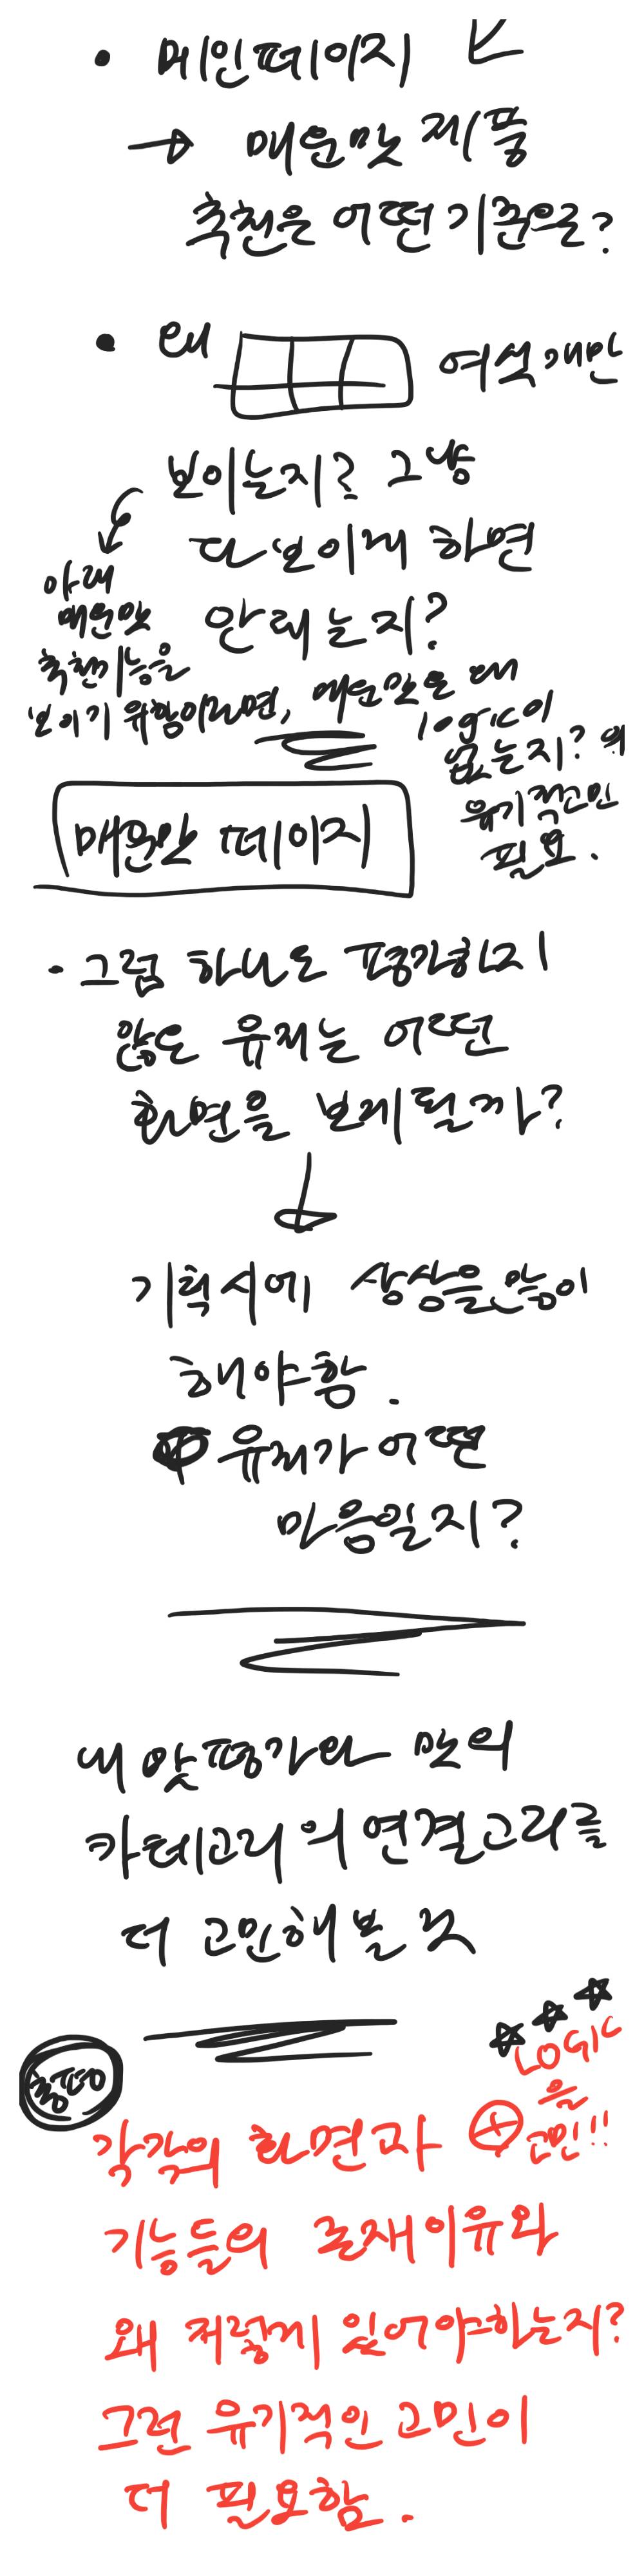 • 메인페이지
→ 매운맛 제품
추천은 어떤기준으로?
• 왜 여섯개만
보이는지? 그냥
다보이게 하면
안되는지?
아래
매운맛
추천기능을
보이기 위함이라면, 매운맛은 왜
logic이
없는지? 의
유기적고민
필요.
매운맛 페이지
· 그럼 하나도 평가하지
않은 유저는 어떤
화면을 보게될까?
↓
기획시에 상상을많이
해야함.
유저가 어떤
마음일지?
내 맛평가와 맛의
카테고리의 연결고리를
더 고민해볼 것
총평
각각의 화면과 ⊕
LOGIC
을
고민!!
기능들의 존재이유와
왜 저렇게 있어야하는지?
그런 유기적인 고민이
더 필요함.